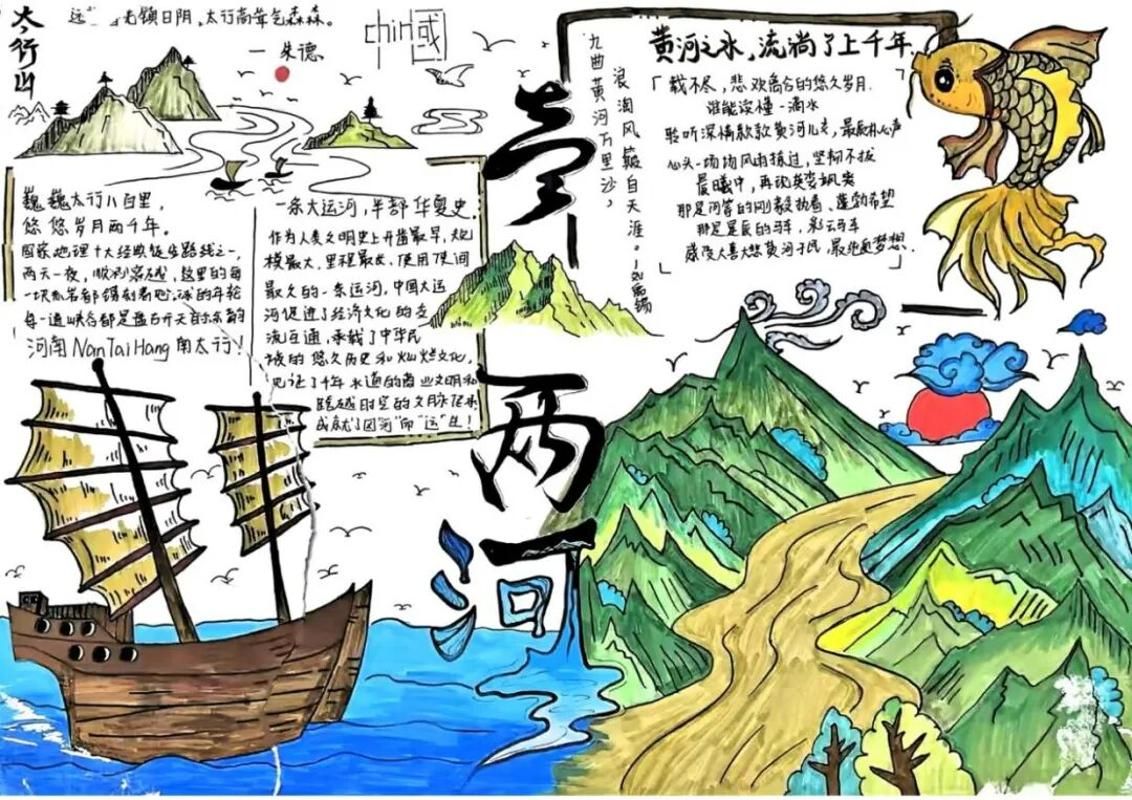 太行山
镇日阴，太行高耸气森森。
— 朱德
chin国
巍巍太行八百里，
悠悠岁月两千年。
国家地理十大经典徒步路线之一，
两天一夜，这里的每
一块
每一道峡谷都是盘古开天
河南NanTaiHang南太行！
一条大运河，半部华夏史
作为人类文明史上开凿最早，规
模最大，里程最长，使用时间
最久的一条运河，中国大运
河促进了经济文化的交
流互通，承载了中华民
族的悠久历史和灿烂文化，
见证了千年水道的商业文明和
跨越时空的文脉
成就了因河而“运”生！
壹
两
河
九曲黄河万里沙，
浪淘风簸自天涯。—刘禹锡
黄河之水，流淌了上千年
「载不尽，悲欢离合的悠久岁月.
谁能读懂一滴水
聆听深情款款黄河儿女，最质朴心声
心头一场场风雨掠过，坚韧不拔
晨曦中，再现
那是河答的刚毅执着、蓬勃希望
那是星辰的马车，彩云的车
感受大喜大悲黄河子民，最绝美梦想.